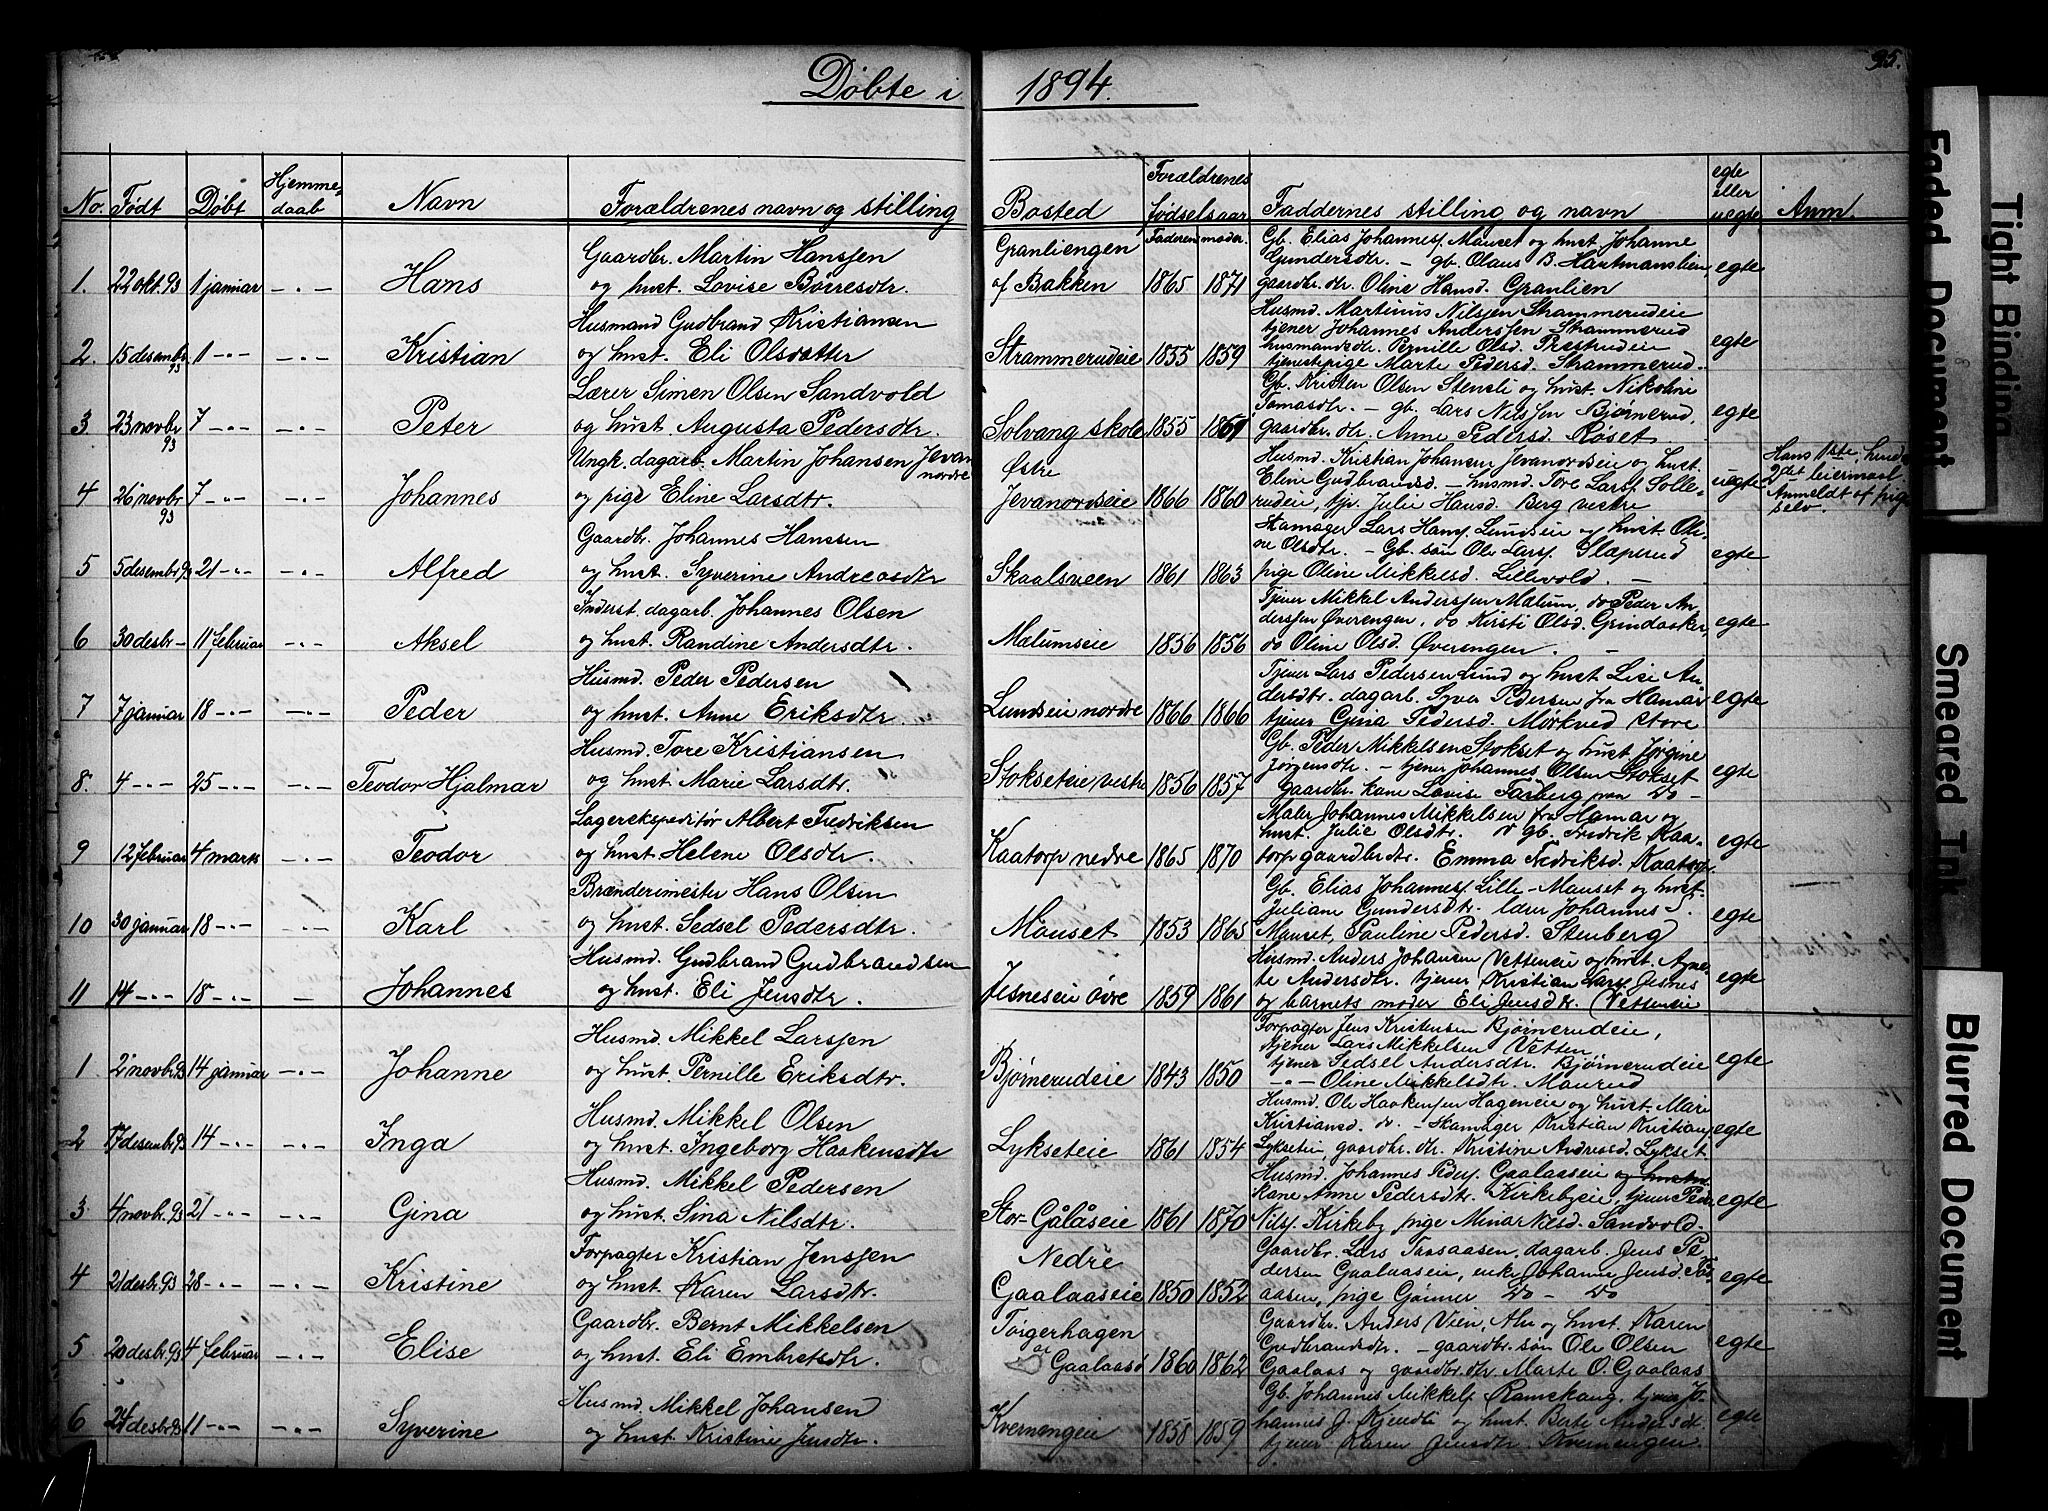 Døbte i 1894.
95.
No. Født Døbt Hjemmedaab Navn Forældrenes navn og stilling Bosted Forældrenes fødselsaar Faddernes stilling og navn egte eller uegte Anm.
Faderen moder.
Gaardbr. Martin Hansen Granliengen Gb. Elias Johannesf. Mauset og hust. Johanne
1. 22 okt. 93 1 januar -"- Hans og hust. Lovise Børresdtr. af Bakken 1865 1871 Gundersdtr. - gb. Olaus B. Hartmanslien egte
gaardbr. dtr. Oline Hansd. Granlien
Husmand Gudbrand Kristiansen Husmd. Martinus Nilsen Strammerudeie
2. 15 desembr. 93 1 -"- -"- Kristian og hust. Eli Olsdatter Strammerudeie 1855 1859 tjener Johannes Andersen Strammerud egte
husmandsdtr. Pernille Olsd. Prestrudeie
tjenestepige Marte Pedersd. Strammerud.
Lærer Simen Olsen Sandvold Gb. Kristen Olsen Stensli og hust. Nikoline
3. 23 novbr 93 7 -"- -"- Peter og hust. Augusta Pedersdtr. Solvang skole 1855 1861 Tomasdtr. - gb. Lars Nilssen Bjørnerud, egte
gaardbr. dtr. Anne Pedersd. Røset.
Ungk. dagarb. Martin Johansen Jevanordre Østre Husmd. Kristian Johansen Jevanordseie og hust. Hans 1ste, hendes
4 26 novbr. 93 7 -"- -"- Johannes og pige Eline Larsdtr. Jevanordseie 1866 1860 Eline Gudbrandsd. - husmd. Tore Larsf. Solle- uegte 2det leiermaal
rudeie, tjv. Julie Hansd. Berg vestre Anmeldt af pige selv.
Gaardbr. Johannes Hanssen Skamager Lars Hansf. Lundseie og hust. Oli-
5 5 desembr. 93 21 -"- -"- Alfred og hust. Syverine Andreasdtr Skaalsveen 1861 1863 ne Olsdtr. - Gb. søn Ole Larsf. Slæperud egte
pige Oline Mikkelsd. Lillevold. -
Inderst. dagarb. Johannes Olsen Tjener Mikkel Anderssen Mælum, do Peder An-
6 30 desbr - 11 februar -"- Aksel og hust. Randine Andersdtr. Mælumseie 1856 1856 dersen Øverengen, do Kirsti Olsd. Grindaaker, egte
do Oline Olsd. Øverengen. -
Husmd. Peder Pedersen Tjener Lars Pedersen Lund og hust. Lise An-
7 7 januar 18 -"- -"- Peder og hust. Anne Eriksdtr. Lundseie nordre 1866 1866 dersdtr. dagarb. Syver Pedersen fra Hamar egte
tjener Gina Pedersd. Mørkved store
Husmd. Tore Kristiansen Gb. Peder Mikkelsen Stokset og hust. Jørgine
8. 4 -"- 25 -"- -"- Teodor Hjalmar og hust. Marie Larsdtr. Stokseteie vestre 1856 1857 Jørgensdtr. - tjener Johannes Olsen Stokset egte
Gaardbr. kone Lovise Farberg paa Do -
Lagerekspeditør Albert Fredriksen Maler Johannes Mikkelsen fra Hamar og
9 12 februar 4 marts -"- Teodor og hust. Helene Olsdtr. Kaatorp nedre 1865 1870 hust. Julie Olsdtr. gb. Fredrik Kaa- egte
torp gaardbrdtr. Emma Fredriksd. Kaatorp
Brænderimester Hans Olsen Gb. Elias Johannesf. Lille-Mauset og hust.
10 30 januar 18 -"- -"- Karl og hust. Sedsel Pedersdtr. Mauset 1853 1865 Juliane Gundersdtr. lærer Johannes S. egte
Mauset, Pauline Pedersd. Stenberg
Husmd. Gudbrand Gudbrandsen Husmd. Anders Johansen Vetteneie og hust. Agne-
11 14 -"- 18 -"- - Johannes og hust. Eli Jensdtr. Jesneseie øvre 1859 1861 te Andersdtr. tjener Kristian Larsf. Jesnes egte
og barnets moder Eli Jensdtr. (Vetteneie
Husmd. Mikkel Larssen Forpagter Jens Kristensen Bjørnerudeie,
1 2 novbr. 93 14 januar -"- Johanne og hust. Pernille Eriksdtr. Bjørnerudeie 1843 1850 tjener Lars Mikkelsen Vetten egte
tjener Sedsel Andersdtr. Bjørnerudeie
-"- Oline Mikkelsdtr. Maurud
Husmd. Mikkel Olsen Husmd. Ole Haakensen Hageneie og hust. Mari
2 17 desembr. 93 14 -"- -"- Inga og hust. Ingeborg Haakensdtr Lykseteie 1861 1854 Kristiansd. - Skamager Kristian Kristiansf. egte
Lyksetei, gaardbr. dtr. Kristine Andreasd. Lykset
Husmd. Mikkel Pedersen Husmd. Johannes Pedersf. Gaalaaseie
3 4 novbr. 93 21 -"- -"- Gina og hust. Sina Nilsdtr. Stor-Gålåseie 1861 1870 kone Anne Pedersdtr. Kirkebyeie, tjener Peder egte
Nilsf. Kirkeby pige Mina Næsd. Sandvold.
Forpagter Kristian Jenssen Nedre Gaardbr. Lars Taasaasen, dagarb. Jens Pe-
4 21 desbr. 93 28 -"- -"- Kristine og hust. Karen Larsdtr. Gaalaaseie 1850 1852 dersen Gaalaaseie, enke Johanne Jensd. Taas- egte
aasen, pige Gunner Do - Do
Gaardbr. Bernt Mikkelsen Torgerhagen Gaardbr. Anders Vien, Alu og hust. Karen
5 20 desbr. 93 4 februar -"- Elise og hust. Eli Embretsdtr. av Gaalaas ø 1860 1862 Gudbrandsdtr. - gaardbr. søn Ole Olsen egte
Gaalaas og gaardbr. dtr Marte O. Gaalaas
Husmd. Mikkel Johansen Gb. Johannes Mikkelsf. Ramskaug, tjener Jo-
6 24 desbr 93 11 -"- -"- Syverine og hust. Kristine Jensdtr. Kvernengeie 1858 1859 hannes J. Kjendli og hust. Berte Andersdt. egte
tjener Karen Jensdtr. Kvernengen.
Faded Document
Tight Binding
Smeared Ink
Blurred Document